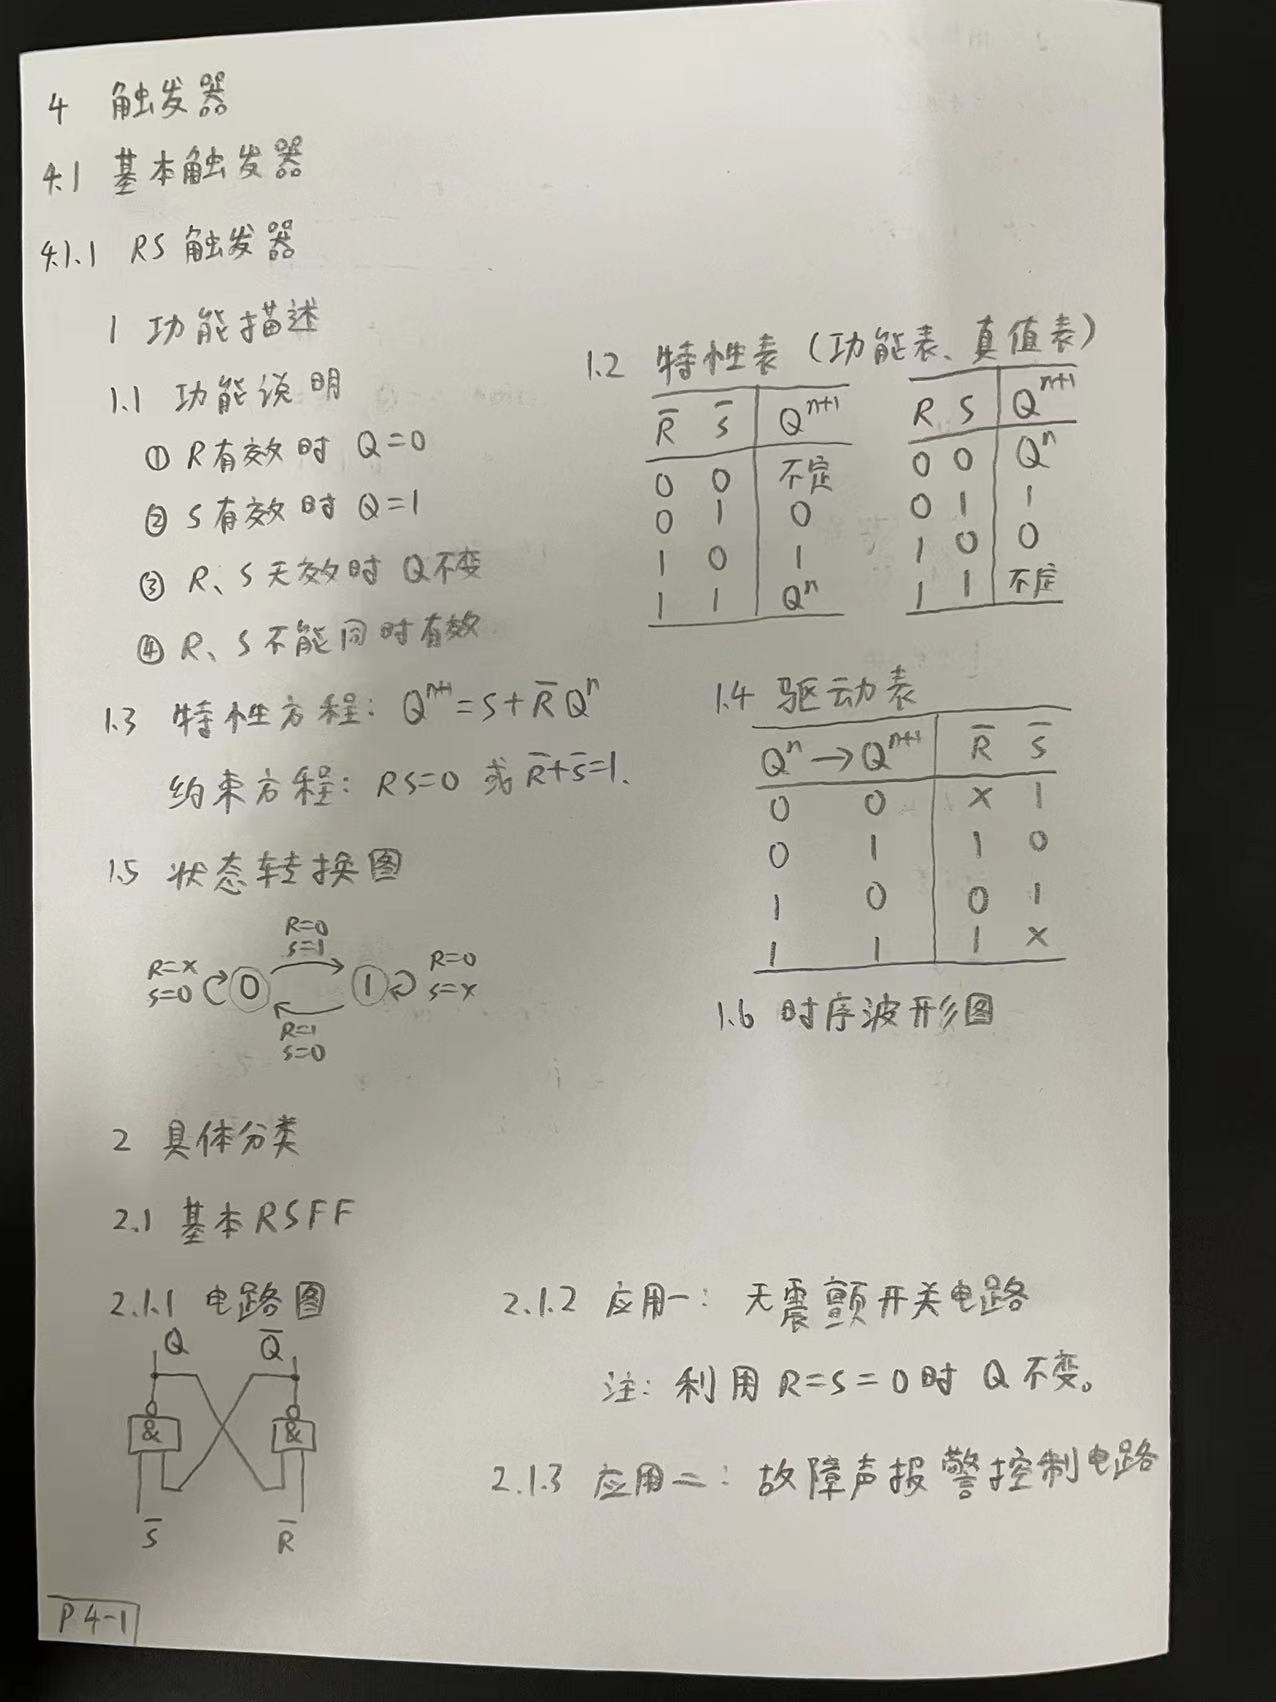 4 触发器
4.1 基本触发器
4.1.1 RS触发器
1 功能描述
1.1 功能说明
① R有效时 Q=0
② S有效时 Q=1
③ R、S无效时 Q不变
④ R、S不能同时有效
1.2 特性表（功能表、真值表）
R̅ S̅ Qⁿ⁺¹
0 0 不定
0 1 0
1 0 1
1 1 Qⁿ
R S Qⁿ⁺¹
0 0 Qⁿ
0 1 1
1 0 0
1 1 不定
1.3 特性方程：Qⁿ⁺¹=S+R̅Qⁿ
约束方程：RS=0 或 R̅+S̅=1.
1.4 驱动表
Qⁿ→Qⁿ⁺¹ R̅ S̅
0 0 × 1
0 1 1 0
1 0 0 1
1 1 1 ×
1.5 状态转换图
R=0
S=1
R=×
S=0
0
1
R=0
S=×
R=1
S=0
1.6 时序波形图
2 具体分类
2.1 基本RSFF
2.1.1 电路图
Q Q̅
& &
S̅ R̅
2.1.2 应用一：无震颤开关电路
注：利用R=S=0时 Q不变。
2.1.3 应用二：故障声报警控制电路
P4-1